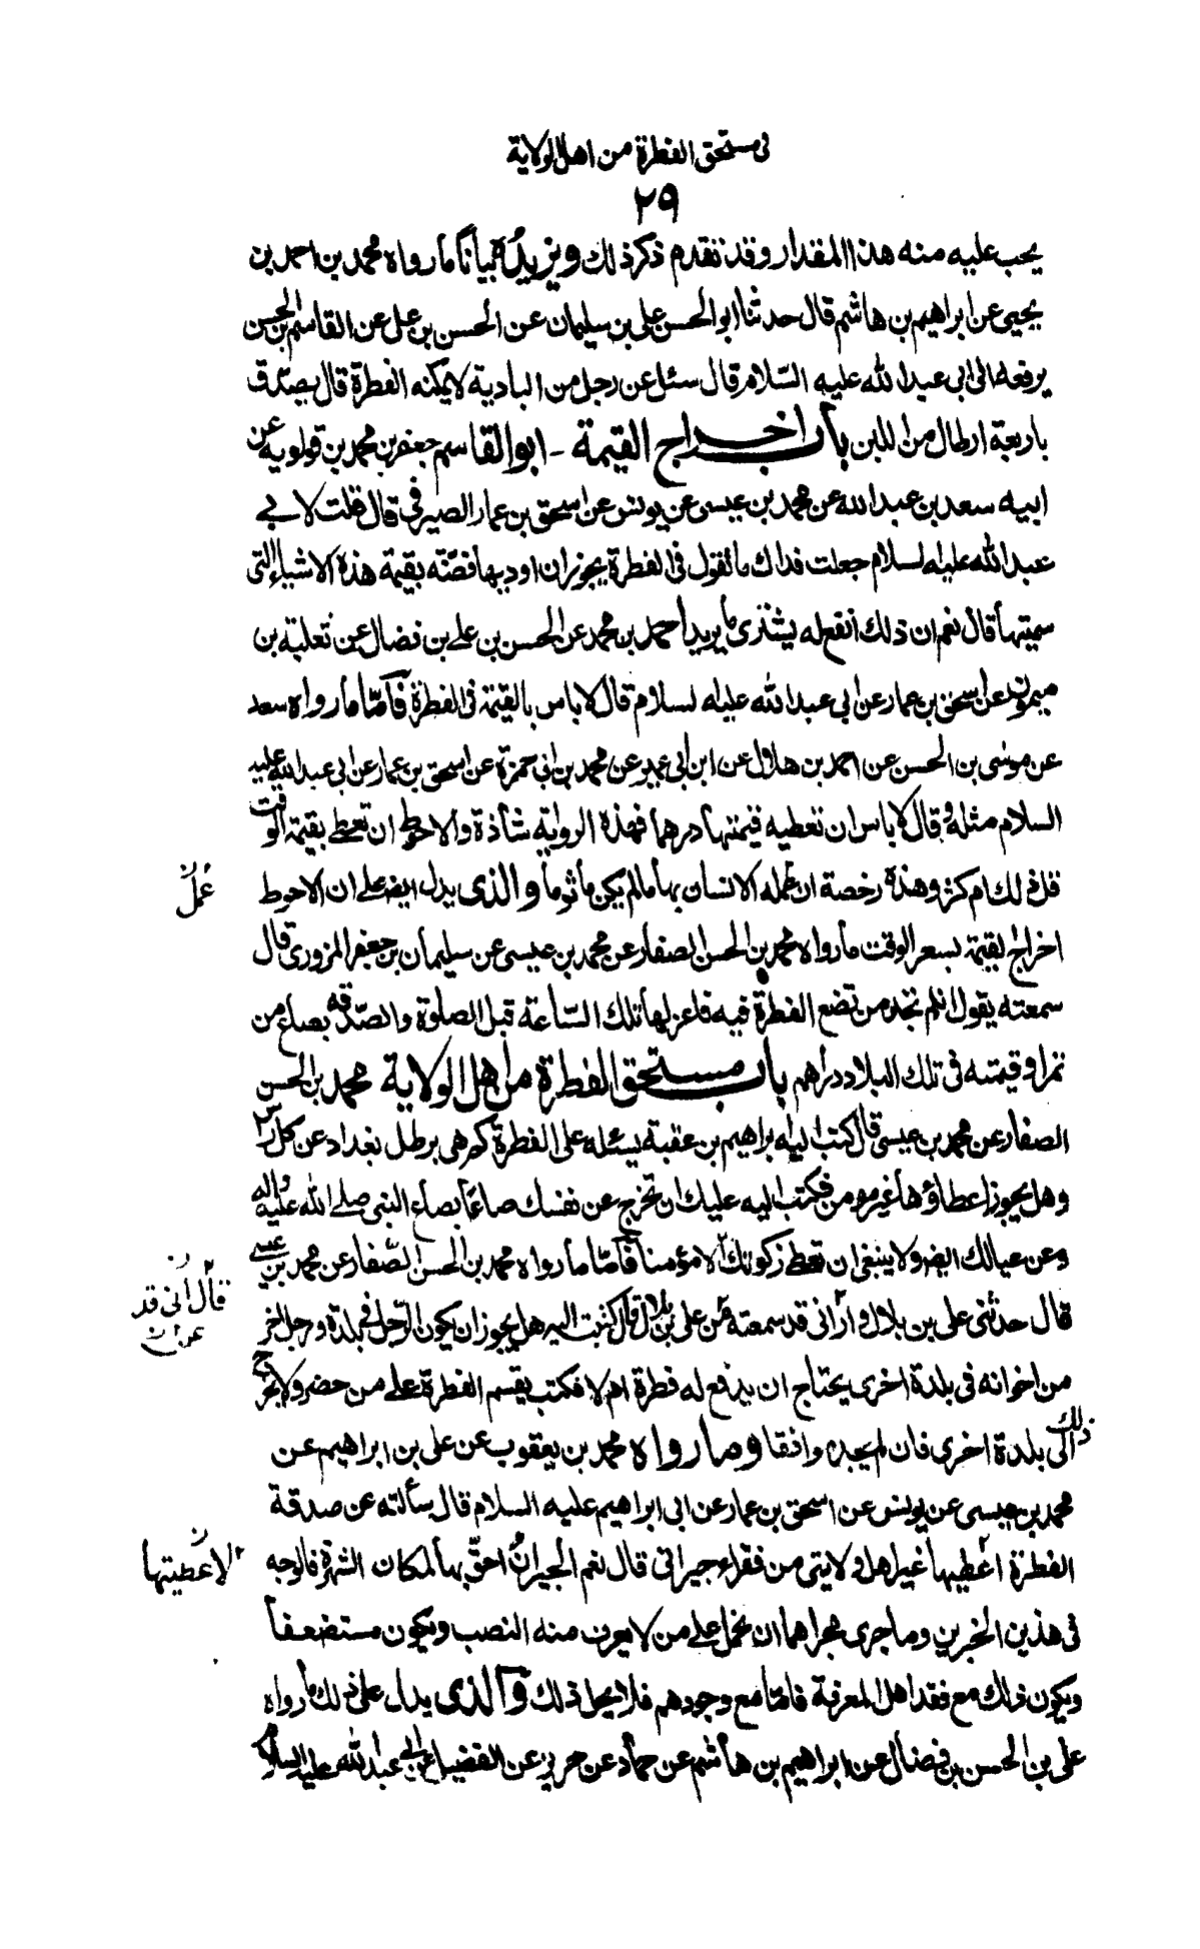 فى مستحق الفطرة من اهل الولاية
٢٩
يجب عليه منه هذا المقدار وقد تقدم ذكر ذلك ويزيده بيانًا ما رواه محمد بن احمد بن
يحيى عن ابراهيم بن هاشم قال حدثنا ابو الحسن على بن سليمان عن الحسن بن على عن القاسم بن الحسن
يرفعه الى ابى عبد الله عليه السّلام قال سئل عن رجل من البادية لا يمكنه الفطرة قال يصدّق
باربعة ارطال من اللبن باب اخراج القيمة - ابو القاسم جعفر بن محمد بن قولويه عن
ابيه سعد بن عبد الله عن محمد بن عيسى عن يونس عن اسحق بن عمار الصيرفى قال قلت لابي
عبد الله عليه السلام جعلت فداك ما تقول فى الفطرة يجوز ان اوديها فضّة بقيمة هذه الاشياء التى
سميتها قال نعم ان ذلك انفع له يشترى ما يريد أحمد بن محمد عن الحسن بن علي بن فضال عن ثعلبة بن
ميمون عن اسحق بن عمار عن ابى عبد الله عليه السلام قال لا باس بالقيمة فى الفطرة فأمّا ما رواه سعد
عن موسى بن الحسن عن احمد بن هلال عن ابن ابى عمير عن محمد بن ابى حمزة عن اسحق بن عمار عن ابى عبد الله عليه
السلام مثله وقال لا باس ان تعطيه قيمتها درهما فهذه الرواية شاذة والاحوط ان تعطى بقيمة الوقت
قل ذلك ام كثر وهذه رخصة ان عمله الانسان بها ما لم يكن ماثوما والذى يدل ايضا على ان الاحوط
عمل ن
اخراج القيمة بسعر الوقت ما رواه محمد بن الحسن الصفار عن محمد بن عيسى عن سليمان بن جعفر المزورى قال
سمعته يقول ان لم تجد من تضع الفطرة فيه فاعزلها تلك السّاعة قبل الصلوة والصّدقة بصاع من
تمر او قيمته فى تلك البلاد دراهم باب مستحق الفطرة من اهل الولاية محمد بن الحسن
الصفار عن محمد بن عيسى قال كتب اليه ابراهيم بن عقبة يسئله على الفطرة كم هى برطل بغداد عن كل رأس
وهل يجوز اعطاؤها غير مومن فكتب اليه عليك ان تخرج عن نفسك صاعًا بصاع النبى صلى الله عليه واله
وعن عيالك ايضا ولا ينبغى ان تعطى زكوتك الا مؤمنا فأمّا ما رواه محمد بن الحسن الصّفار عن محمد بن عيسى
قال حدثنى على بن بلال وأرانى قد سمعته من على بن بلال قال كتبت اليه هل يجوز ان يكون الرّجل فى بلدة ورجل اخر
قال انى قد
من اخوانه فى بلدة اخرى يحتاج ان يدفع له فطرة ام لا فكتب يقسم الفطرة على من حضر ولا يخرج
ذلك الى بلدة اخرى فان لم يجد موافقا وما رواه محمد بن يعقوب عن على بن ابراهيم عن
محمد بن عيسى عن يونس عن اسحق بن عمار عن ابى ابراهيم عليه السلام قال سألته عن صدقة
الفطرة أعطيها غير اهل ولايتى من فقراء جيرانى قال نعم الجيران احقّ بها لمكان الشهرة فالوجه
لاعطيتها ن
فى هذين الخبرين وما جرى مجراهما ان نحمل على من لا يعرف منه النصب ويكون مستضعفاً
ويكون ذلك مع فقد اهل المعرفة فامّا مع وجودهم فلا يحل ذلك والذى يدل على ذلك ما رواه
على بن الحسن بن فضال عن ابراهيم بن هاشم عن حمّاد عن حريز عن الفضيل عن ابى عبد الله عليه السلام